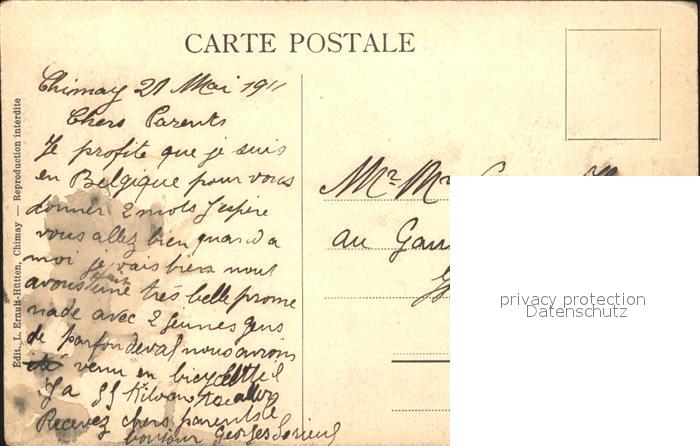 CARTE POSTALE
Chimay 21 Mai 1911
Chers Parents
Je profite que je suis
en Belgique pour vous
donner 2 mots J'espère
vous allez bien quand a
moi je vais bien nout
avous fait une très belle prome
nade avec 2 jeunes gens
de parfondeval nous avions
été venu en bicyclette
Y a 55 Kilom aller
Recevez chers parents le
bonjour Georges
Mr Mr
au Gau
Edit. L. Ernult-Hütten, Chimay — Reproduction interdite
privacy protection
Datenschutz